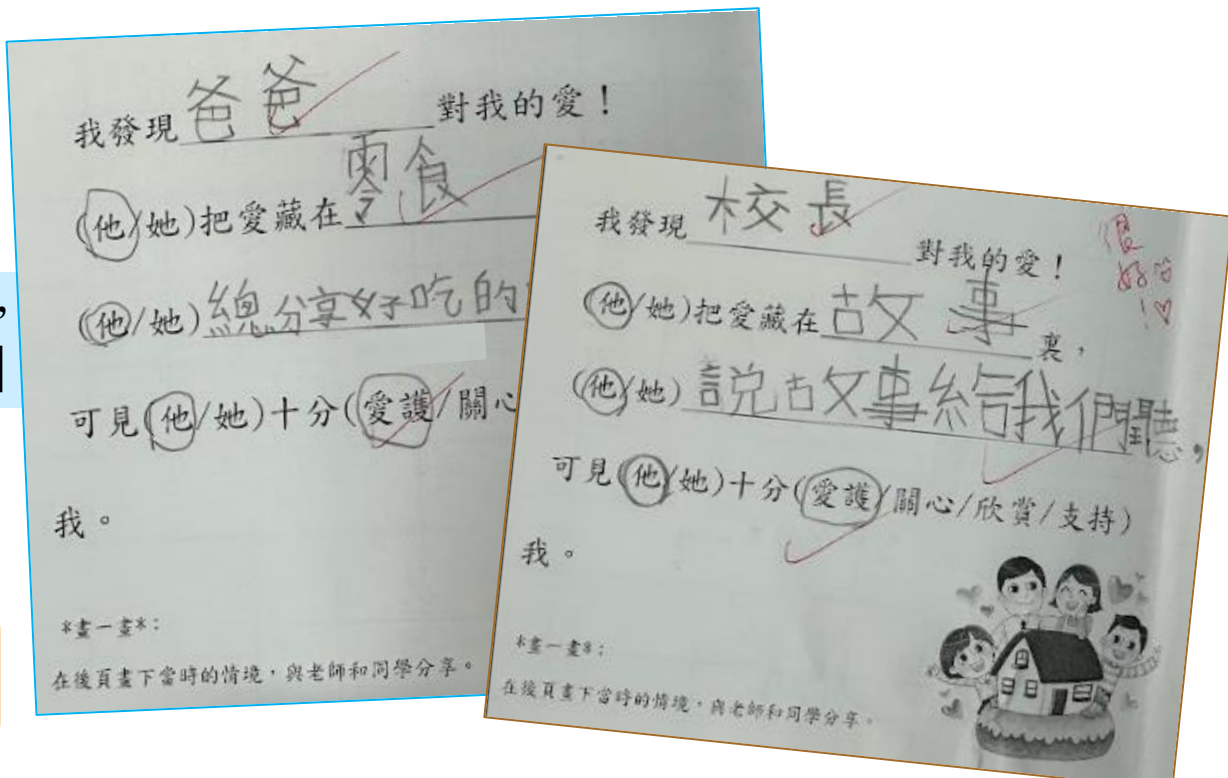 我發現爸爸對我的愛！
(他/她)把愛藏在零食
(他/她)總分享好吃的
可見(他/她)十分(愛護/關心
我。
*畫一畫*：
在後頁畫下當時的情境，與老師和同學分享。
我發現校長對我的愛！
很好！
(他/她)把愛藏在故事裏，
(他/她)說故事給我們聽，
可見(他/她)十分(愛護/關心/欣賞/支持)
我。
*畫一畫*：
在後頁畫下當時的情境，與老師和同學分享。